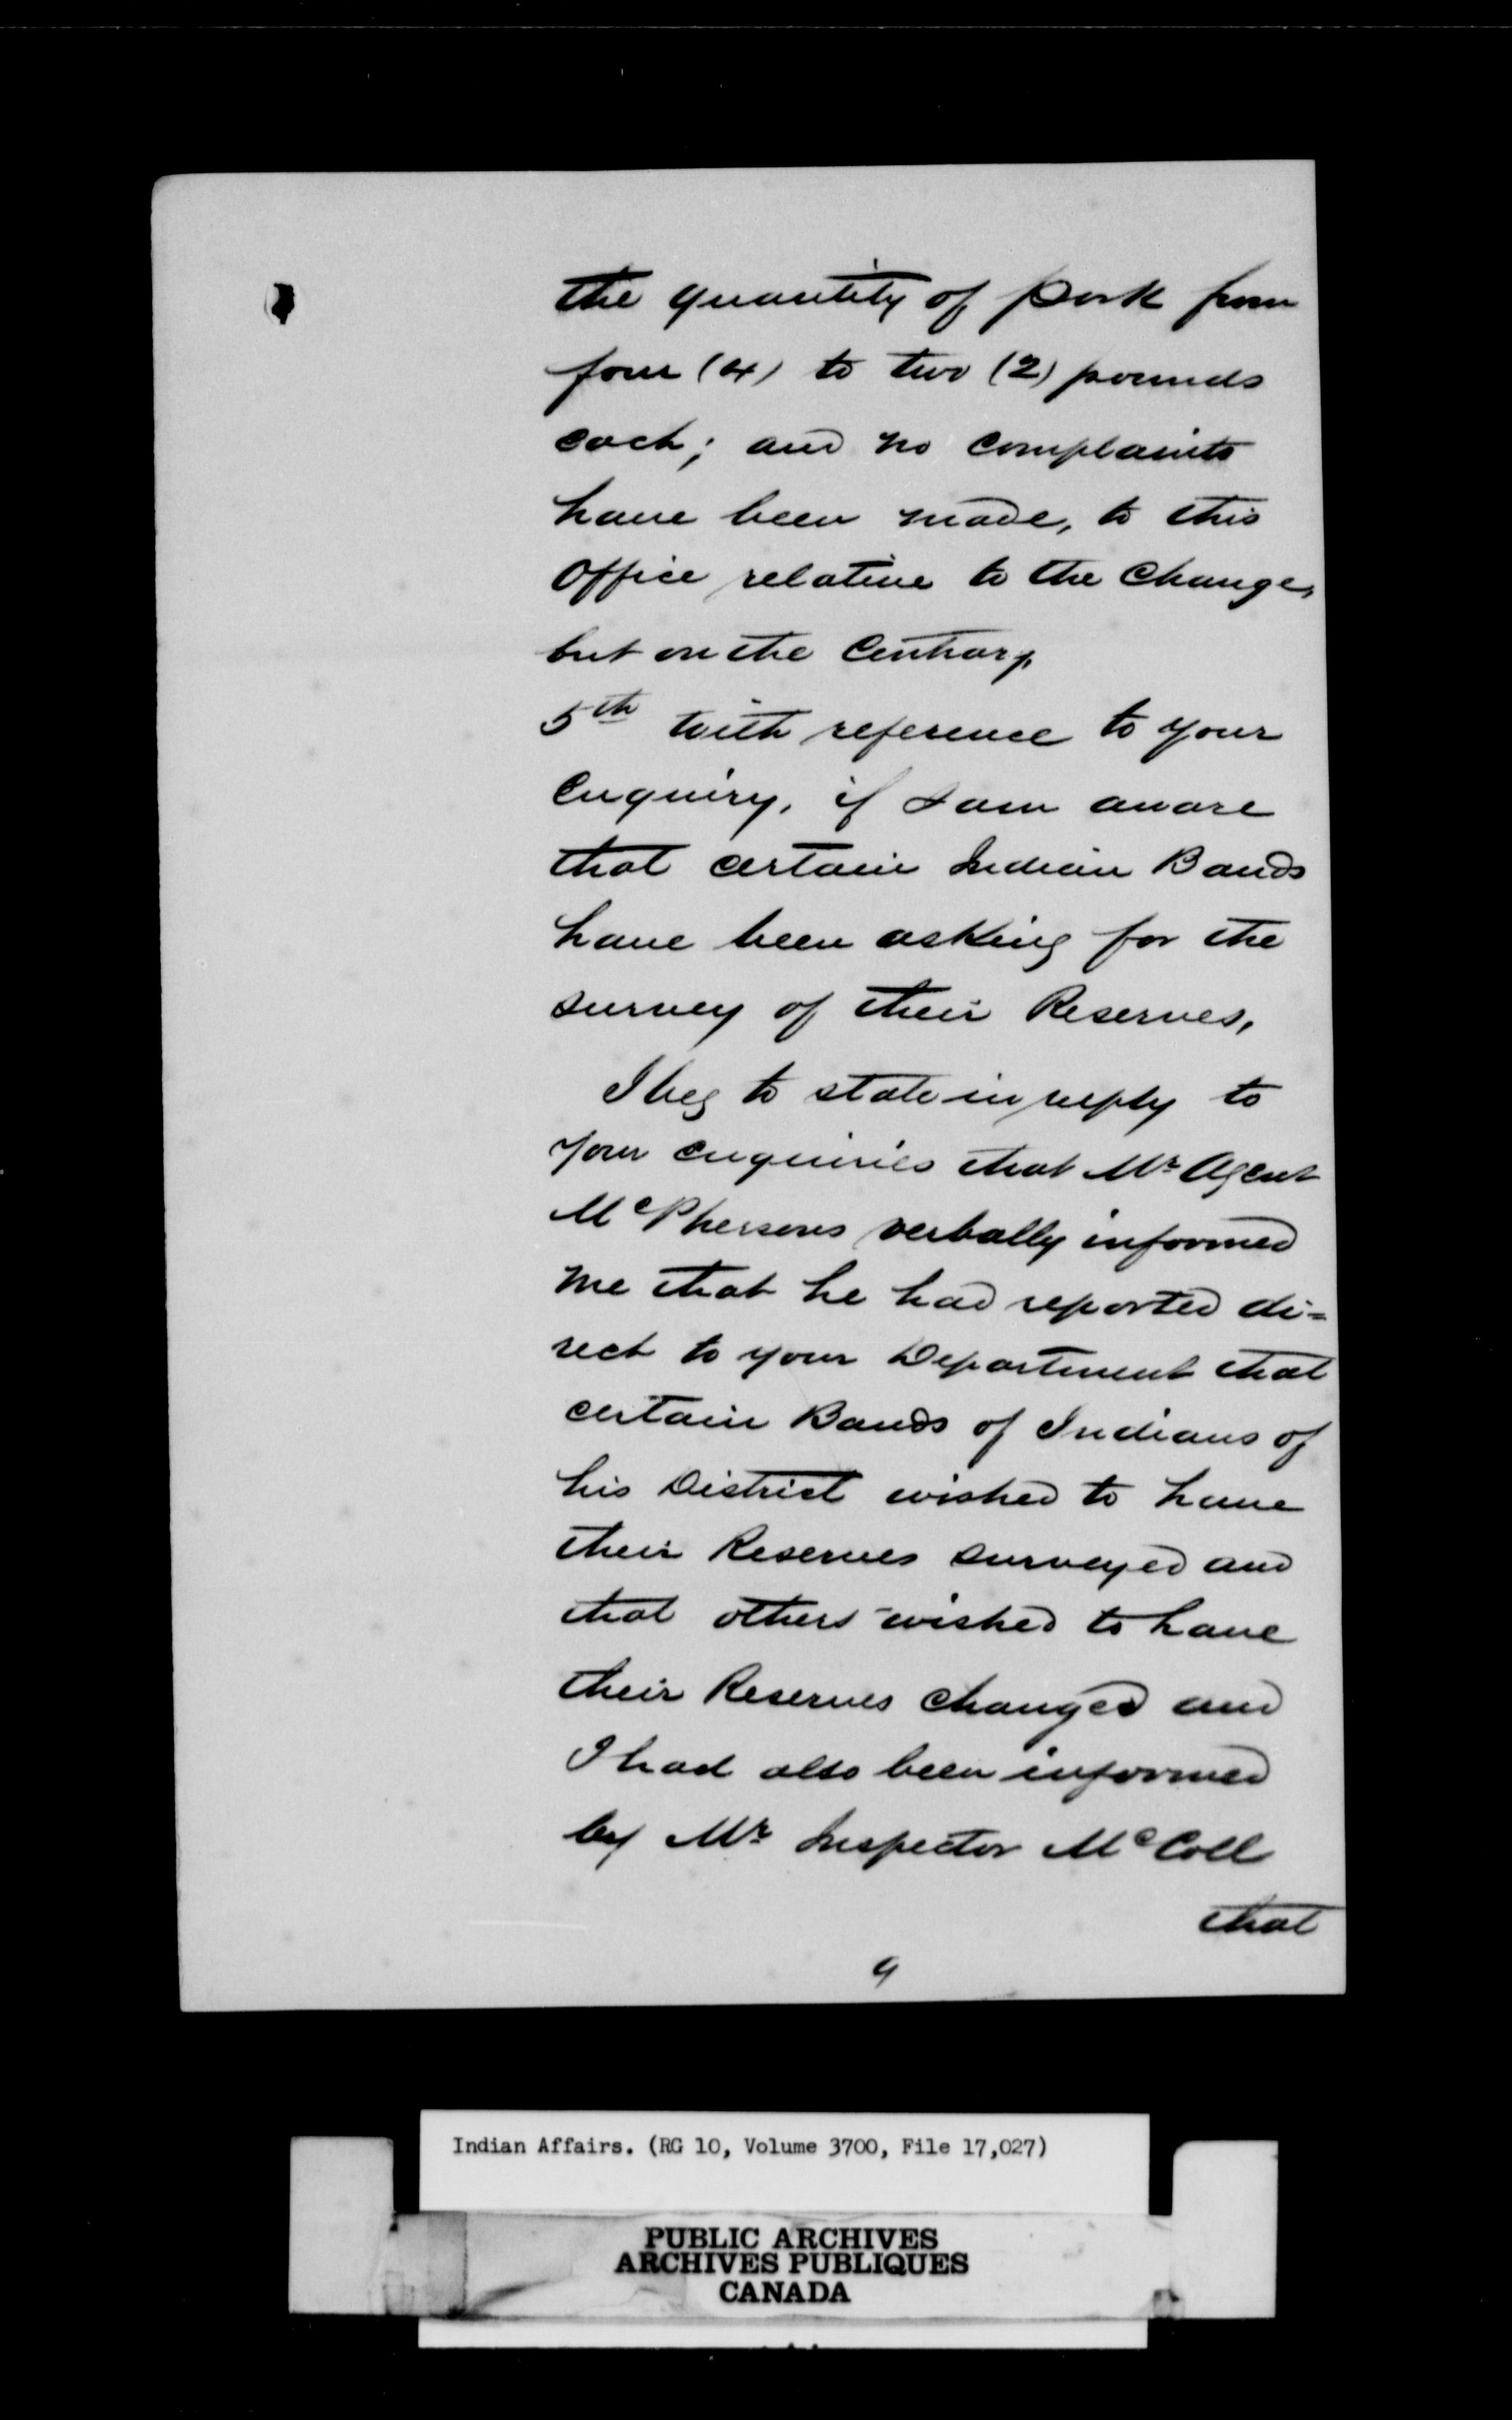 the quantity of pork from
four (4) to two (2) pounds
each; and no complaints
have been made, to this
Office relative to the Change,
but on the Contrary.
5th With reference to your
Enquiry, if I am aware
that certain Indian Bands
have been asking for the
survey of their Reserves,
I beg to state in reply to
your enquiries that Mr Agent
McPherson verbally informed
me that he had reported di=
rect to your Department that
certain Bands of Indians of
his District wished to have
their Reserves surveyed and
that others wished to have
their Reserves changed and
I had also been informed
by Mr Inspector McColl
that
9
Indian Affairs. (RG 10, Volume 3700, File 17,027)
PUBLIC ARCHIVES
ARCHIVES PUBLIQUES
CANADA